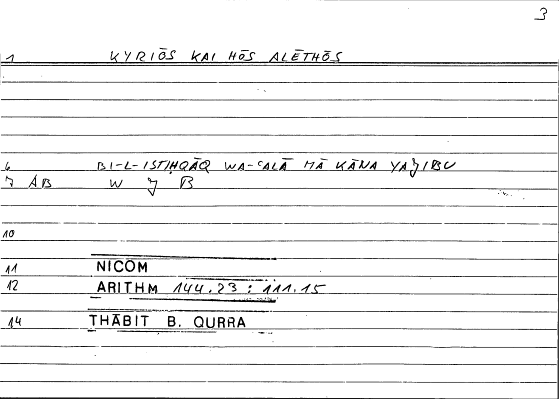 3
1 KYRIŌS KAI HŌS ALĒTHŌS
6 BI-L-ISTIḤQĀQ WA-ʿALĀ MĀ KĀNA YAJIBU
J ÁB W J B
10
11 NICOM
12 ARITHM 144.23 : 111.15
14 THĀBIT B. QURRA